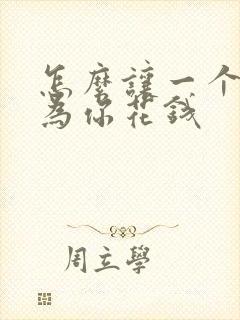 怎麼讓一个
为你花钱
周立學